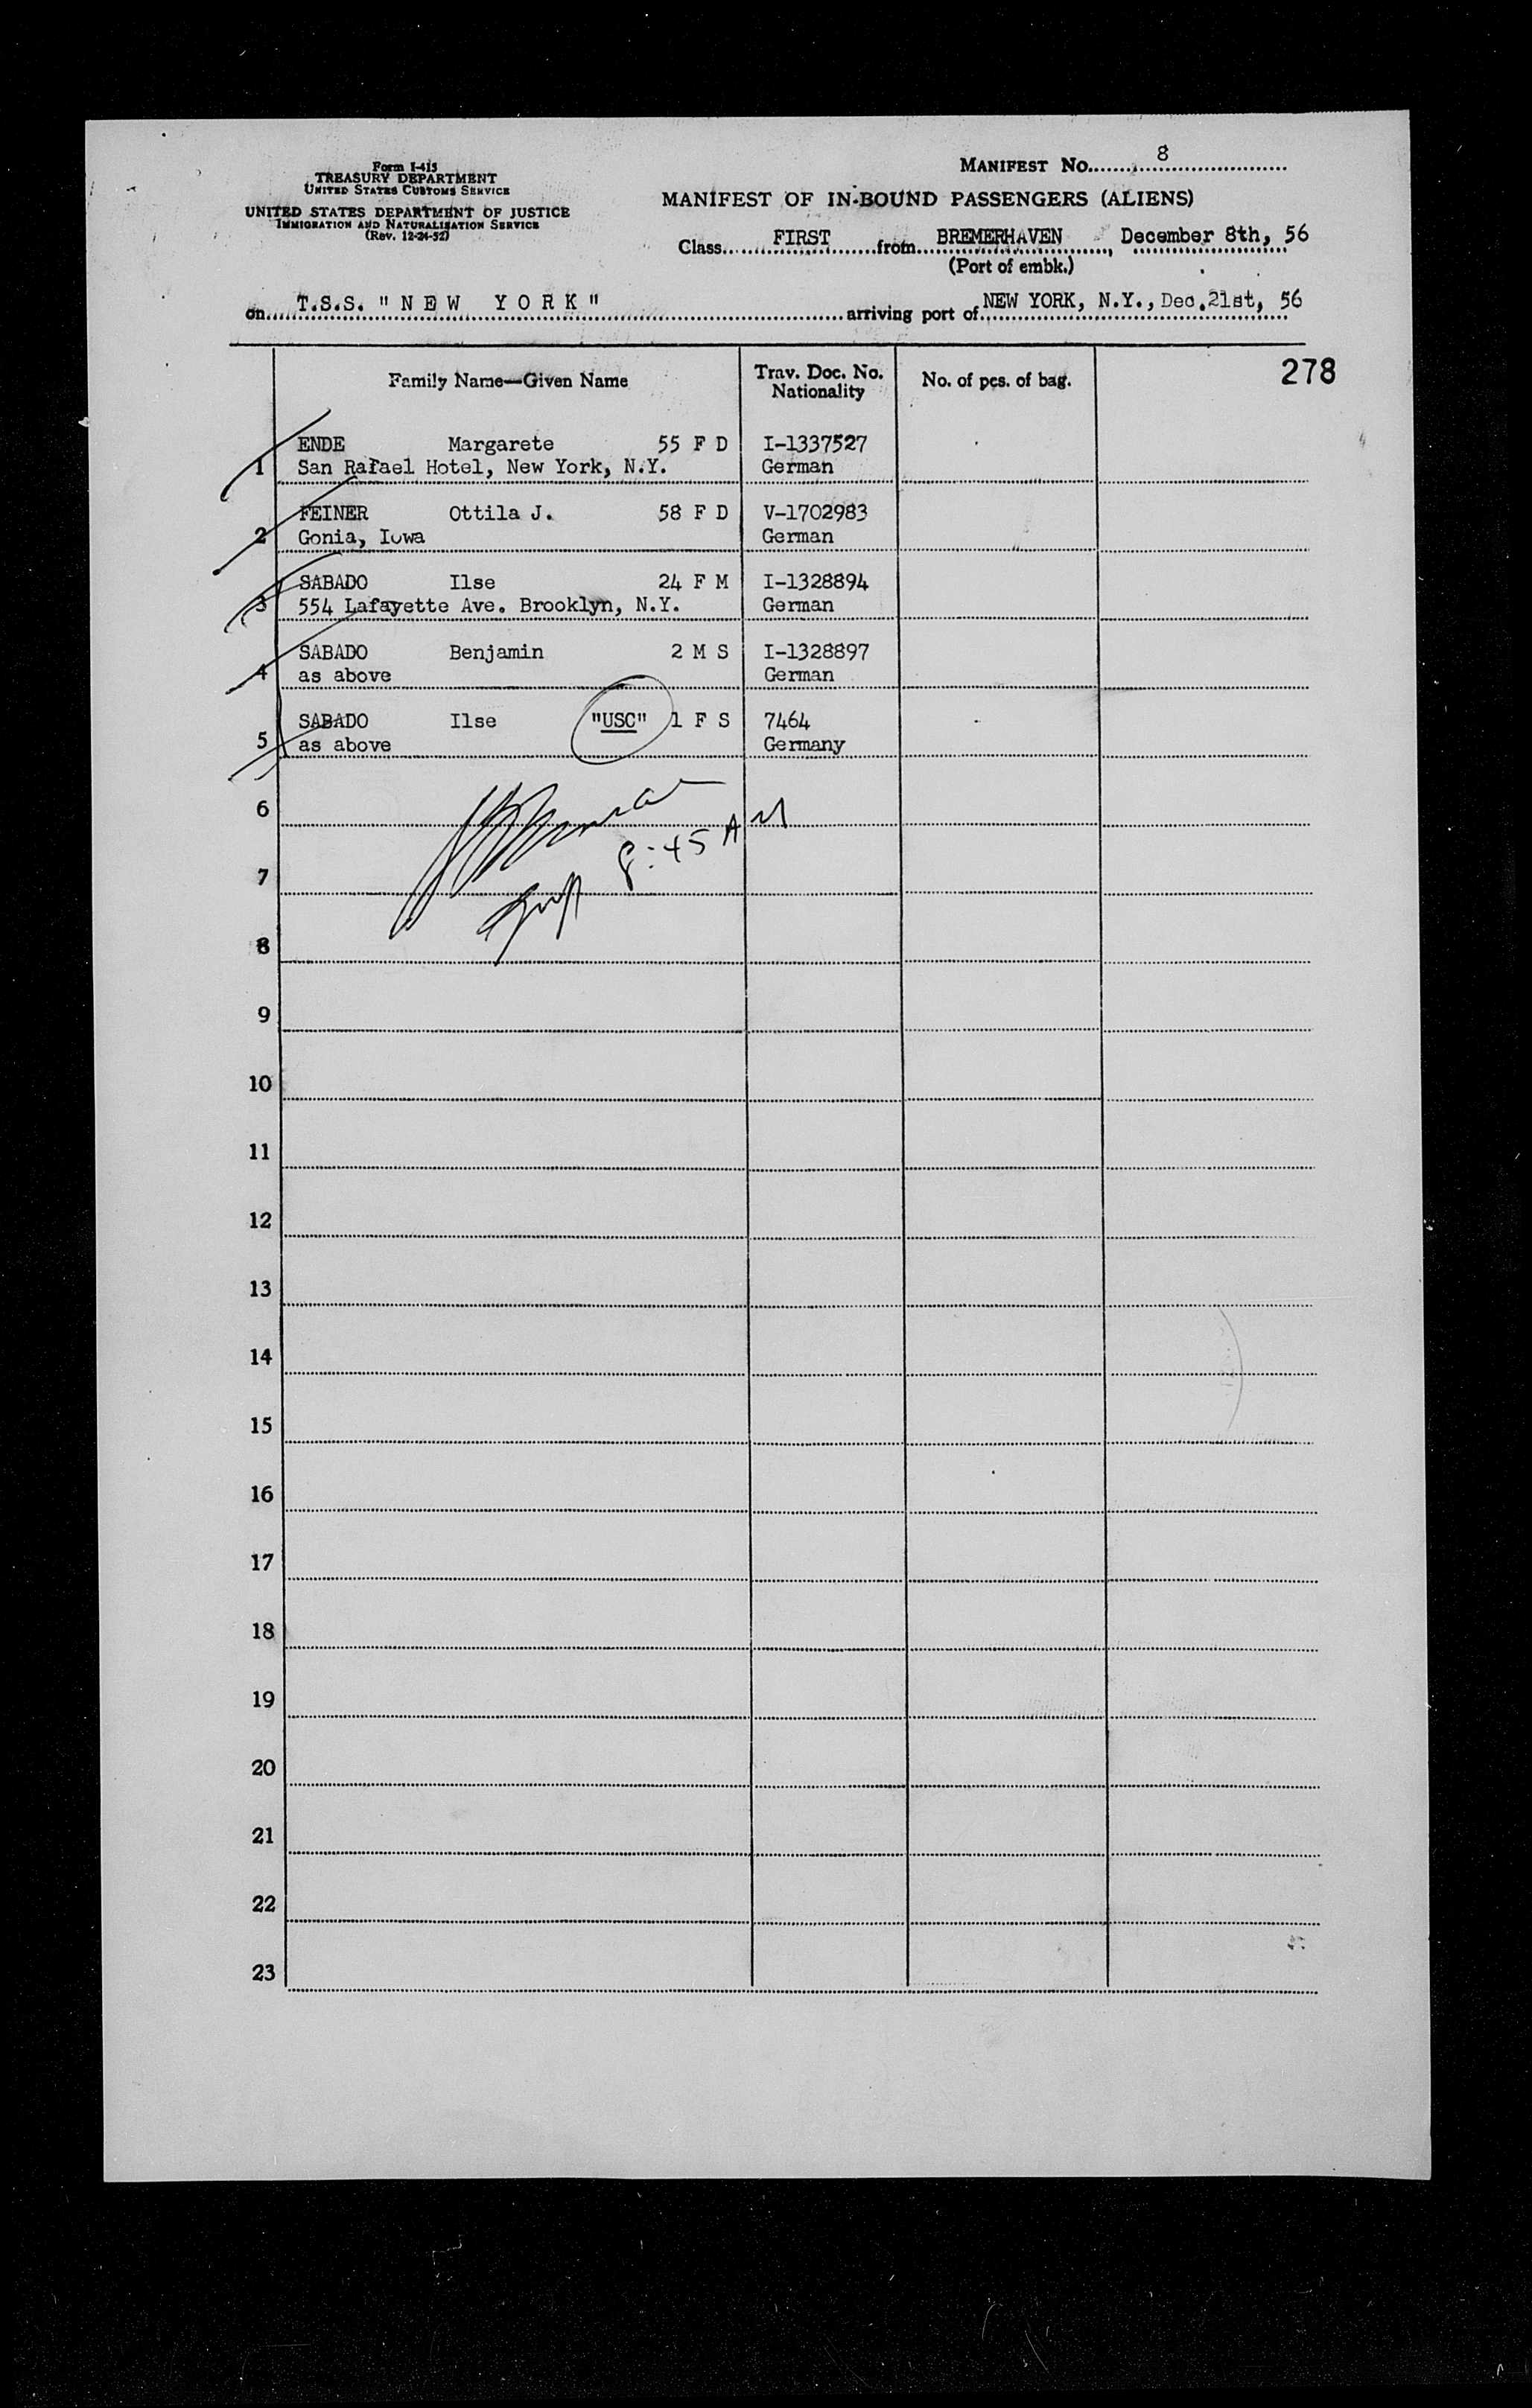 Form I-415
TREASURY DEPARTMENT
UNITED STATES CUSTOMS SERVICE
UNITED STATES DEPARTMENT OF JUSTICE
IMMIGRATION AND NATURALIZATION SERVICE
(Rev. 12-24-52)
MANIFEST No. 8
MANIFEST OF IN-BOUND PASSENGERS (ALIENS)
Class FIRST from BREMERHAVEN, December 8th, 56
(Port of embk.)
on T.S.S. "NEW YORK" arriving port of NEW YORK, N.Y., Dec. 21st, 56
278
Family Name—Given Name Trav. Doc. No. Nationality No. of pcs. of bag.
1 ENDE Margarete 55 F D I-1337527
San Rafael Hotel, New York, N.Y. German
2 FEINER Ottila J. 58 F D V-1702983
Gonia, Iowa German
3 SABADO Ilse 24 F M I-1328894
554 Lafayette Ave. Brooklyn, N.Y. German
4 SABADO Benjamin 2 M S I-1328897
as above German
5 SABADO Ilse "USC" 1 F S 7464
as above Germany
6
8:45 AM
7
8
9
10
11
12
13
14
15
16
17
18
19
20
21
22
23